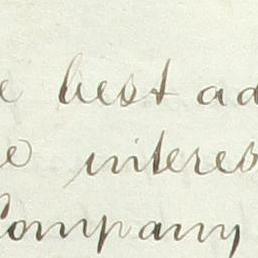 e best ad
e interes
Company